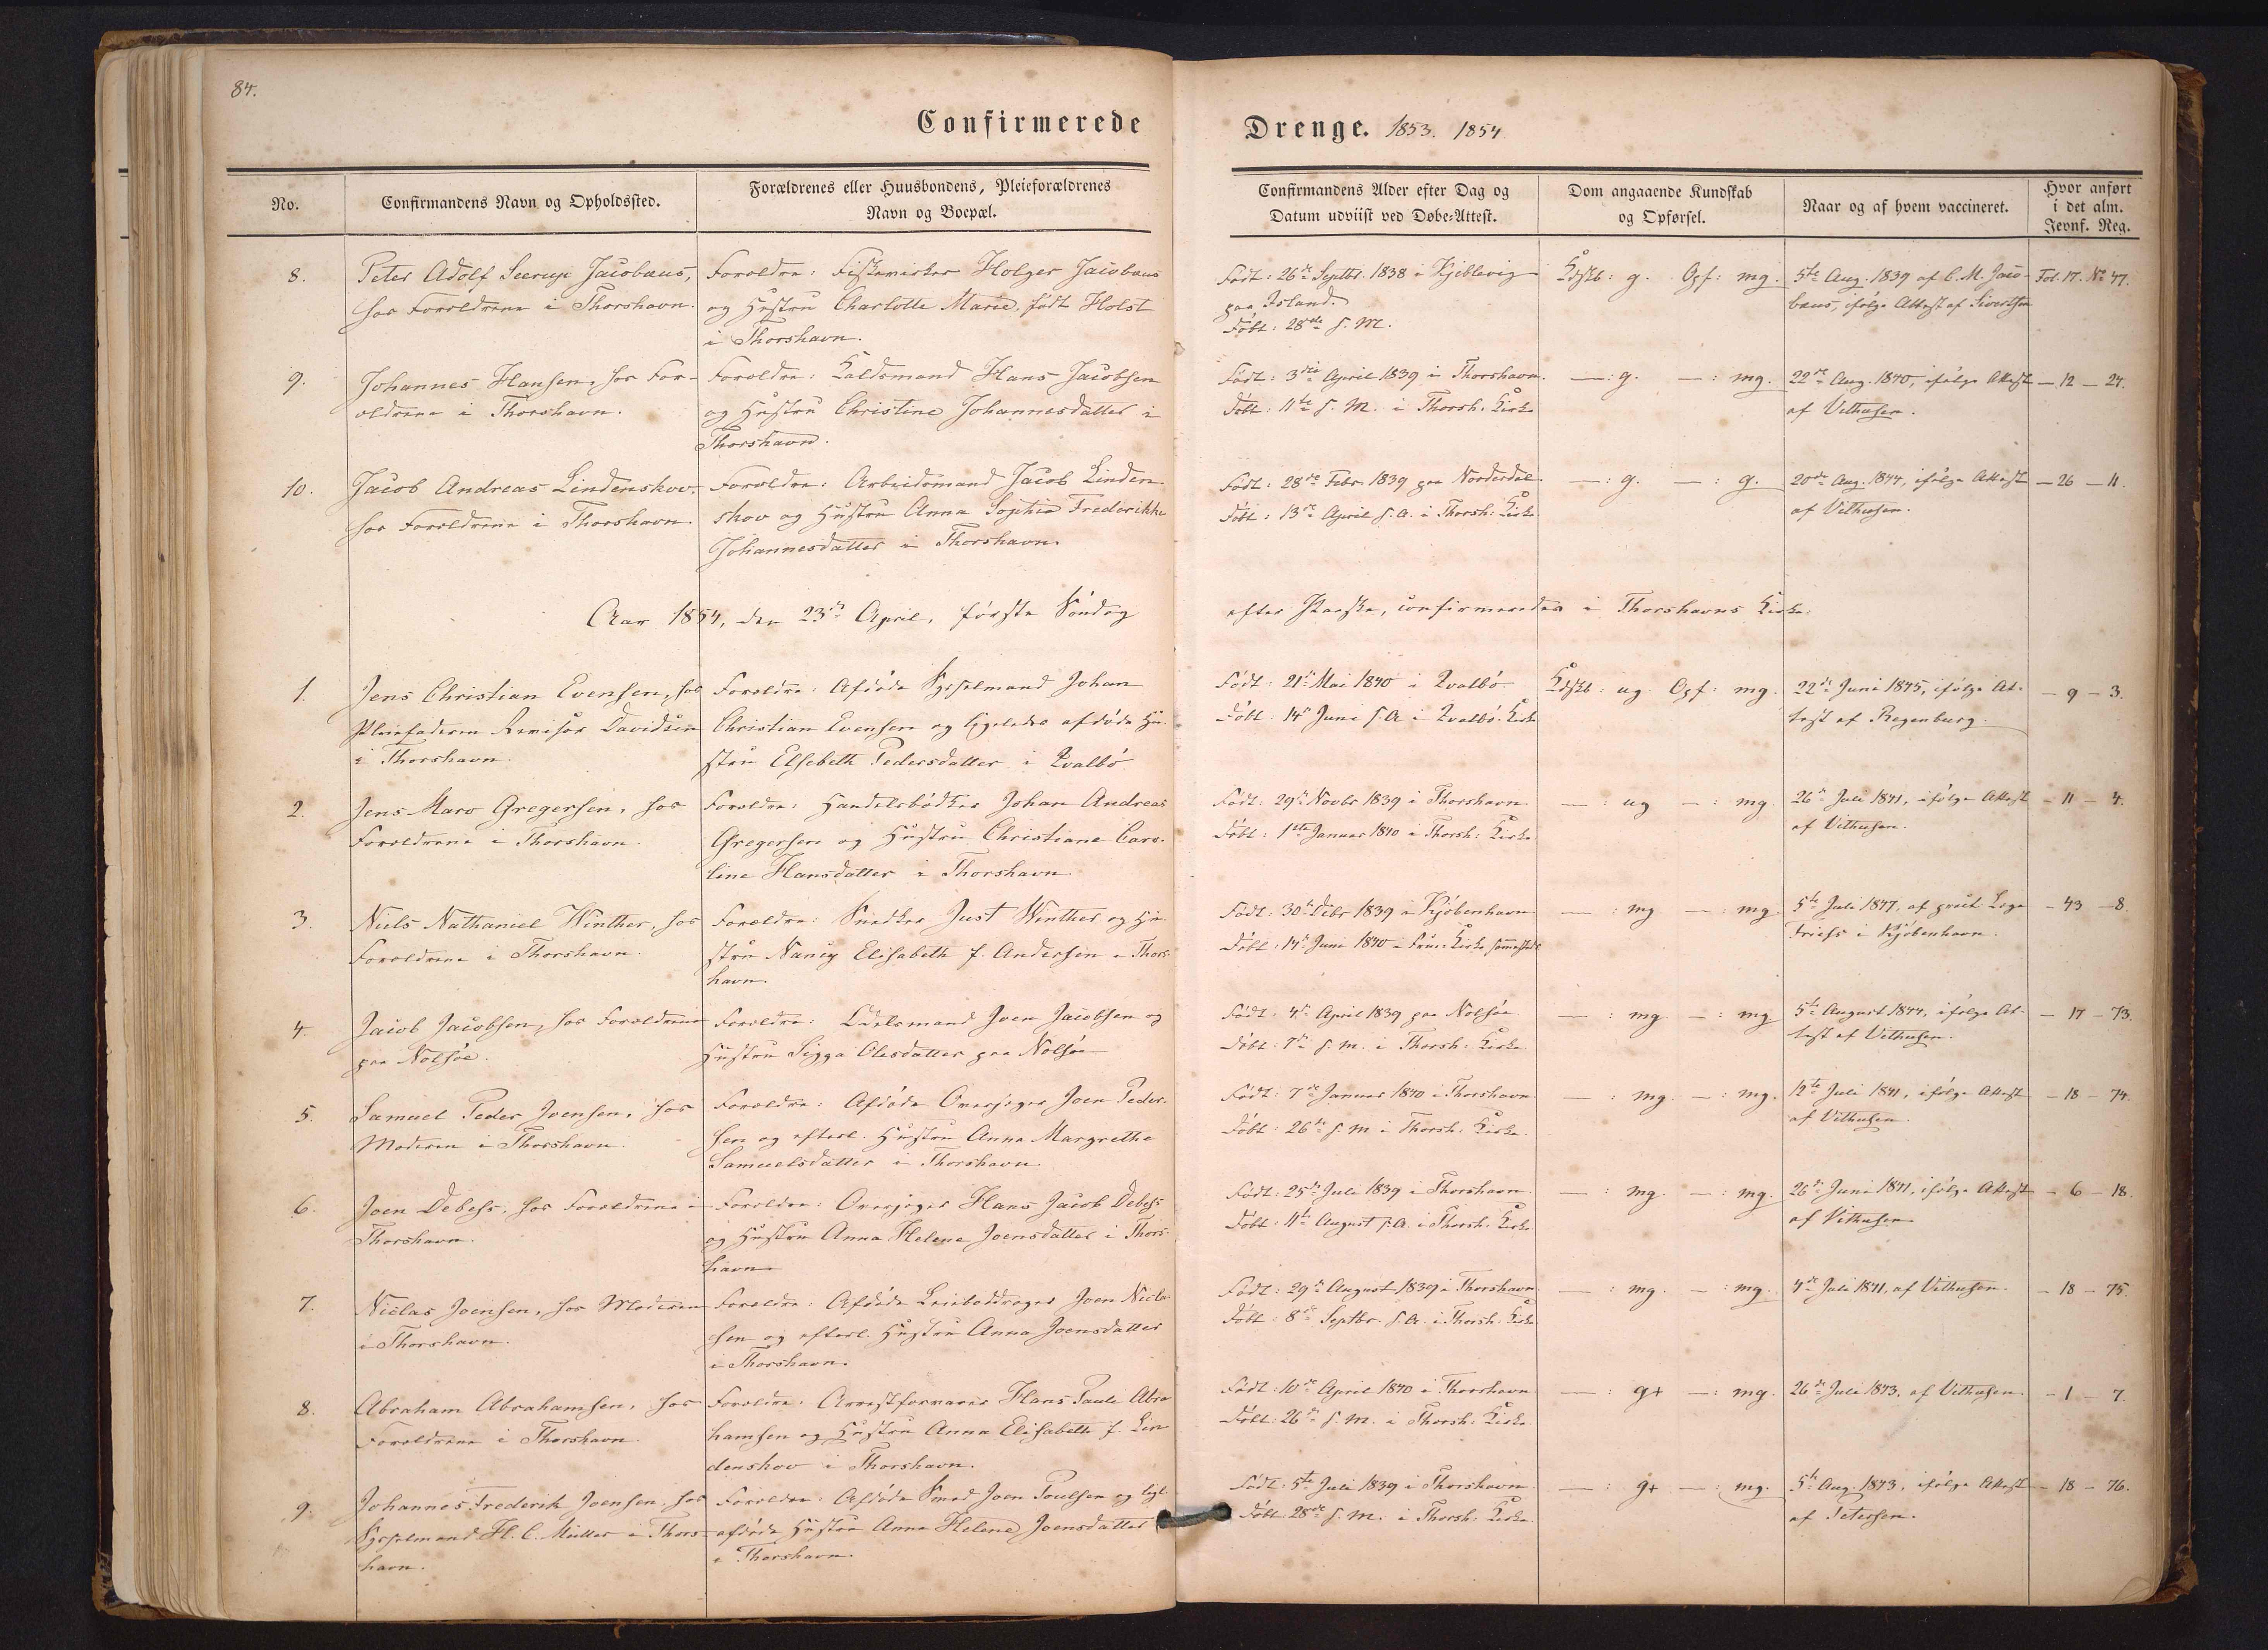 84.
Confirmerede
Drenge. 1853. 1854
No.
Confirmandens Navn og Opholdssted.
Forældrenes eller Huusbondens, Pleieforældrenes
Navn og Boepæl.
Confirmandens Alder efter Dag og
Datum udviist ved Døbe-Attest.
Dom angaaende Kundskab
og Opførsel.
Naar og af hvem vaccineret.
Hvor anført
i det alm.
Jevnf. Reg.
8.
Peter Adolf Seerup Jacobæus,
hos Forældrene i Thorshavn.
Forældre: Fiskevrager Holger Jacobæus
og Hustru Charlotte Marie, født Holst
i Thorshavn.
Født: 26de Septbr. 1838 i Kjeblevig
paa Island.
Døbt: 28de s. M.
Kdskb: g. Opf: mg.
5te Aug. 1839 af C. M. Jaco-
bæus, ifølge Attest af Sivertsen
Fol. 17. No 47.
9.
Johannes Hansen, hos For-
ældrene i Thorshavn.
Forældre: Kaldsmand Hans Jacobsen
og Hustru Christine Johannesdatter i
Thorshavn.
Født: 3die April 1839 i Thorshavn.
Døbt: 11te s. M. i Thorsh. Kirke
— : g. — : mg.
22de Aug. 1840, ifølge Attest
af Vithusen.
— 12 — 24.
10.
Jacob Andreas Lindenskov,
hos Forældrene i Thorshavn.
Forældre: Arbeidsmand Jacob Linden
skov og Hustru Anna Sophie Frederikke
Johannesdatter i Thorshavn.
Født: 28de Febr. 1839 paa Norderdal.
Døbt: 13de April s. A. i Thorsh: Kirke
— : g. — : g.
20de Aug. 1844, ifølge Attest
af Vithusen.
— 26 — 11.
Aar 1854, den 23de April, første Søndag
efter Paaske, confirmeredes i Thorshavns Kirke:
1.
Jens Christian Evensen, hos
Pleiefaderen Revisor Davidsen
i Thorshavn.
Forældre: Afdøde Sysselmand Johan
Christian Evensen og ligeledes afdøde Hu-
stru Elsebeth Pedersdatter i Qvalbø.
Født: 21de Mai 1840 i Qvalbø.
Døbt: 14de Juni s. A. i Qvalbø. Kirke
Kdskb: ug. Opf: mg.
22de Juni 1845, ifølge At-
test af Regenburg.
— 9 — 3.
2.
Jens Maro Gregersen, hos
Forældrene i Thorshavn.
Forældre: Handelsbødker Johan Andreas
Gregersen og Hustru Christiane Caro-
line Hansdatter i Thorshavn.
Født: 29de Novbr 1839 i Thorshavn
Døbt: 1ste Januar 1840 i Thorsh: Kirke
— : ug — : mg.
26de Juli 1841, ifølge Attest
af Vithusen.
— 11 — 4.
3.
Niels Nathaniel Winther, hos
Forældrene i Thorshavn.
Forældre: Snedker Just Winther og Hu-
stru Nancy Elisabeth f. Andersen i Thors-
havn.
Født: 30te Debr 1839 i Kjøbenhavn
Døbt: 14de Juni 1840 i Frue Kirke sammesteds
— : mg — : mg
5te Juli 1847, af pract. Læge
Friess i Kjøbenhavn.
— 43 — 8.
4.
Jacob Jacobsen, hos Forældrene
paa Nolsøe.
Forældre: Odelsmand Joen Jacobsen og
Hustru Sigga Olesdatter paa Nolsøe
Født: 4de April 1839 paa Nolsøe
Døbt: 7de s. M. i Thorsh: Kirke.
— : mg. — : mg
5te August 1844, ifølge At-
test af Vithusen.
— 17 — 73.
5.
Samuel Peder Joensen, hos
Moderen i Thorshavn.
Forældre: Afdøde Overjæger Joen Peder-
sen og efterl. Hustru Anna Margrethe
Samuelsdatter i Thorshavn.
Født: 7de Januar 1840 i Thorshavn
Døbt: 26de s. M. i Thorsh: Kirke.
— : mg. — : mg.
12te Juli 1841, ifølge Attest
af Vithusen.
— 18 — 74.
6.
Joen Debess, hos Forældrene i
Thorshavn.
Forældre: Overjæger Hans Jacob Debess
og Hustru Anna Helene Joensdatter i Thors-
havn
Født: 25de Juli 1839 i Thorshavn.
Døbt: 11te August s. A. i Thorsh: Kirke.
— : mg. — : mg.
26de Juni 1841, ifølge Attest
af Vithusen
— 6 — 18.
7.
Niclas Joensen, hos Moderen
i Thorshavn.
Forældre: Afdøde Joen Nicla-
sen og efterl. Hustru Anna Joensdatter
i Thorshavn.
Født: 29de August 1839 i Thorshavn
Døbt: 8de Septbr. s. A. i Thorsh. Kirke
— : mg — : mg.
4de Juli 1841, af Vithusen.
— 18 — 75.
8.
Abraham Abrahamsen, hos
Forældrene i Thorshavn.
Forældre: Arrestforvarer Hans Pauli Abra
hamsen og Hustru Anna Elisabeth f. Lin
denskov i Thorshavn.
Født: 10de April 1840 i Thorshavn
Døbt: 26de s. M. i Thorsh: Kirke.
— : g+ — : mg.
26de Juli 1843, af Vithusen.
— 1 — 7.
9.
Johannes Frederik Joensen, hos
Sysselmand H. C. Müller i Thors-
havn.
Forældre: Afdøde Smed Joen Poulsen og ligl.
afdøde Hustru Anna Helene Joensdatter
i Thorshavn.
Født: 5te Juli 1839 i Thorshavn
Døbt: 28de s. M. i Thorsh: Kirke.
— : g+ — : mg.
5te Aug. 1843, ifølge Attest
af Petersen.
— 18 — 76.